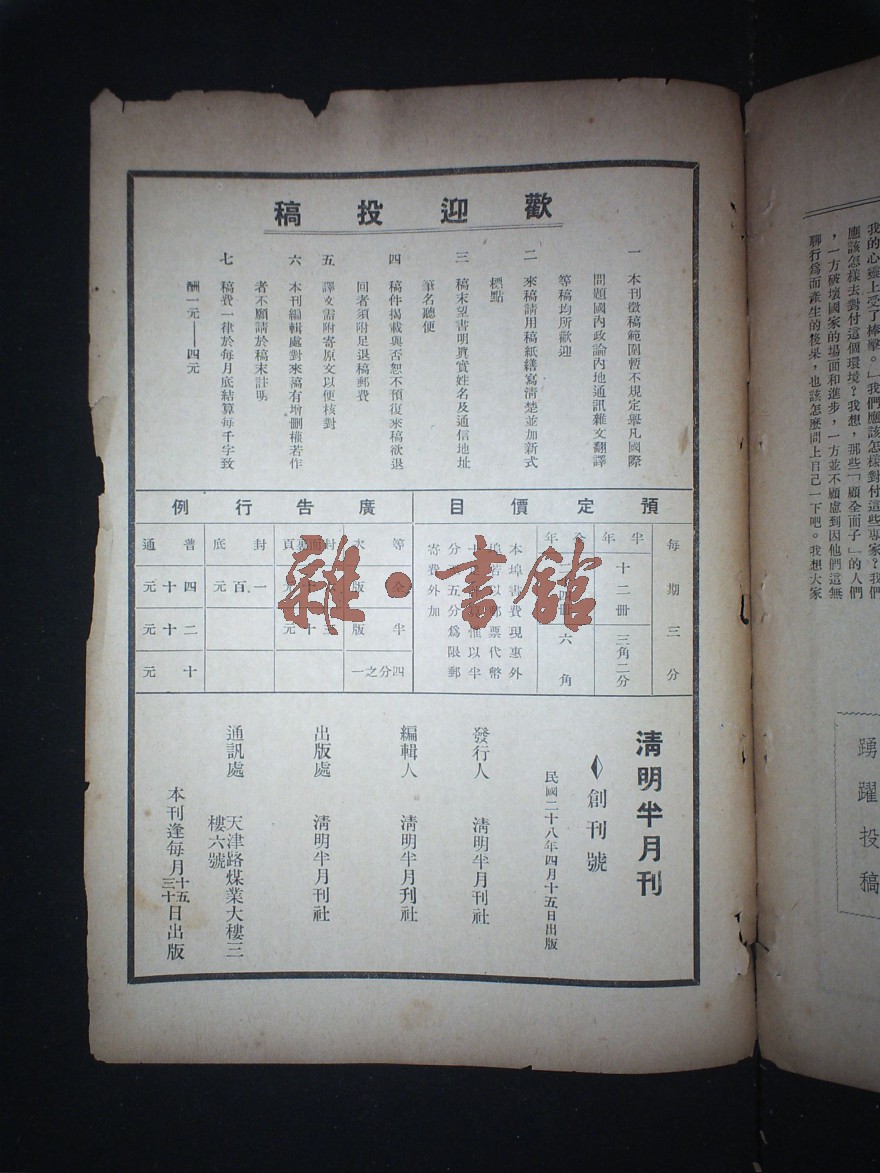 歡迎投稿
一　本刊徵稿範圍暫不規定舉凡國際
問題國內政論內地通訊雜文翻譯
等稿均所歡迎
二　來稿請用稿紙繕寫淸楚並加新式
標點
三　稿末望書明眞實姓名及通信地址
筆名聽便
四　稿件揭載與否恕不預復來稿欲退
回者須附足退稿郵費
五　譯文需附寄原文以便核對
六　本刊編輯處對來稿有增刪權若作
者不願請於稿末註明
七　稿費一律於每月底結算每千字致
酬一元——四元
預定價目
每期三分
半年
十二冊
三角二分
年
冊
六角
本埠書費現惠外
埠若以郵票代幣
以半
分五分爲限郵
寄費外加
廣告行例
等
版
半版
四分之一
元
三十元
封底
一百元
普通
四十元
二十元
十元
淸明半月刊
創刊號
民國二十八年四月十五日出版
發行人　淸明半月刊社
編輯人　淸明半月刊社
出版處　淸明半月刊社
通訊處　天津路煤業大樓三
樓六號
本刊逢每月十五三十日出版
雜·書館
我的心靈上受了棒擊。」我們應該怎樣對付這些專家？我們
應該怎樣去對付這個環境？我想，那些「顧全面子」的人們
，一方破壞國家的場面和進步，一方並不顧慮到因他們這無
聊行爲而產生的後果，也該怎麼問上自己一下吧。我想大家
踴躍投稿